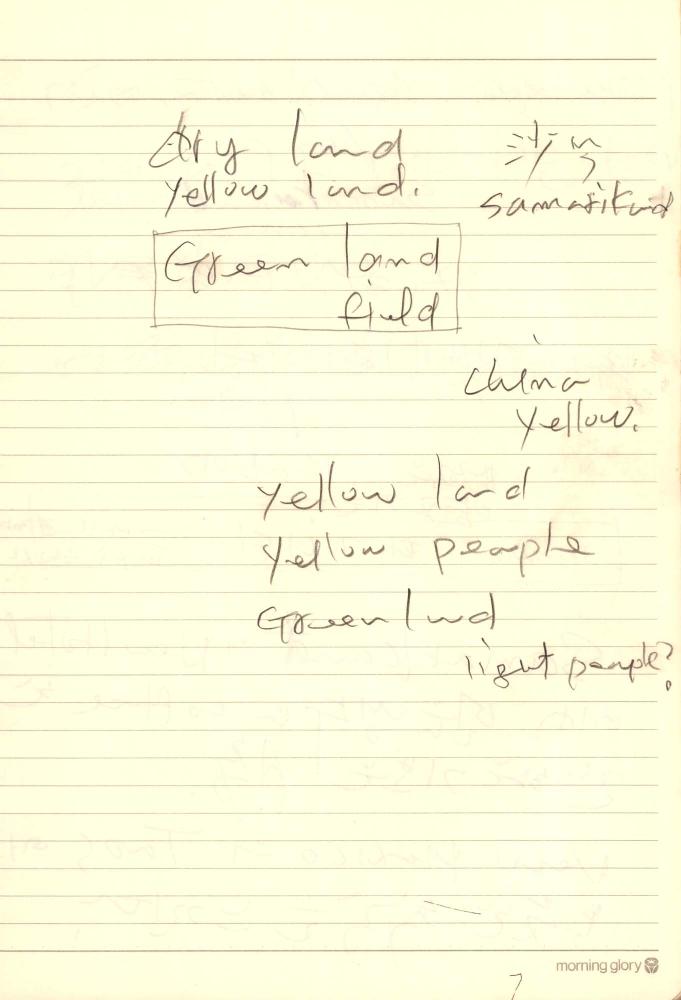 dry land
yellow land.
Green land
field
China
yellow.
yellow land
yellow people
Green land
light people?
morning glory